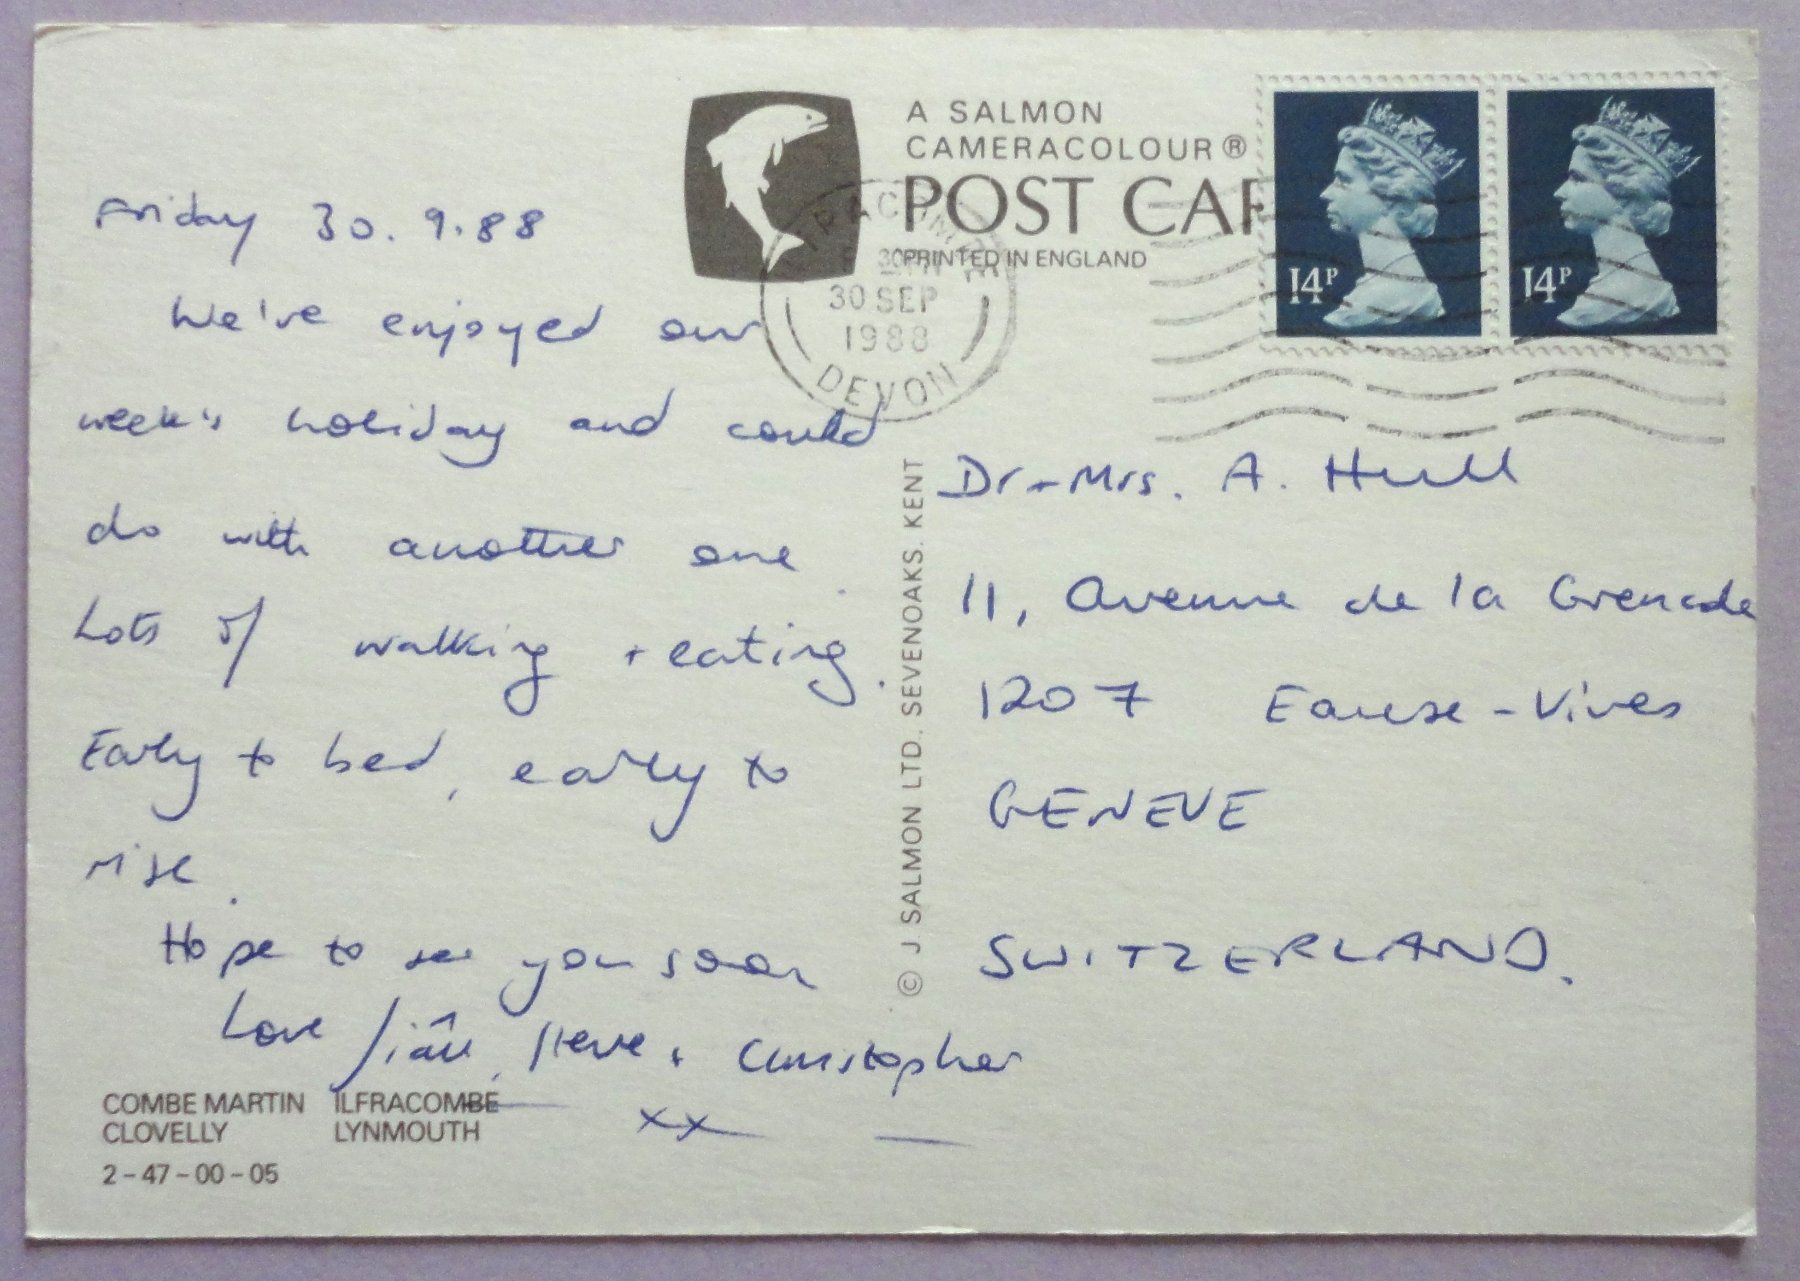 A SALMON
CAMERACOLOUR®
POST CAR
PRINTED IN ENGLAND
14P
14P
30 SEP
1988
DEVON
Friday 30.9.88
We've enjoyed our
week's holiday and could
do with another one.
Lots of walking + eating.
Early to bed, early to
rise.
Hope to see you soon
Love Siân, Steve + Christopher
xx
Dr + Mrs. A. Hull
11, Avenue de la Grenade
1207 Eause-Vives
GENEVE
SWITZERLAND.
© J SALMON LTD. SEVENOAKS. KENT
COMBE MARTIN ILFRACOMBE
CLOVELLY LYNMOUTH
2-47-00-05